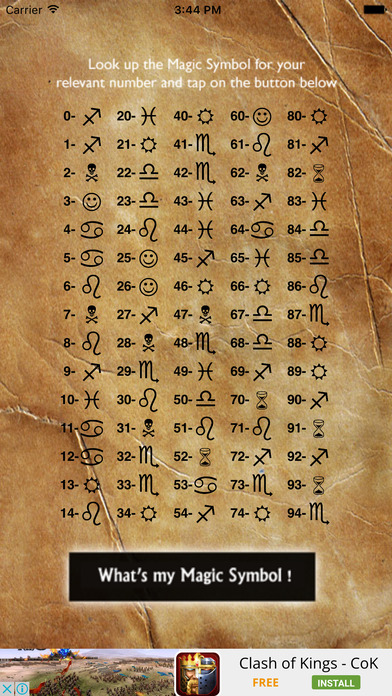 Carrier 3:44 PM
Look up the Magic Symbol for your
relevant number and tap on the button below
0- ♐ 20- ♓ 40- 🌣 60- ☺ 80- 🌣
1- ♐ 21- 🌣 41- ♏ 61- ♌ 81- ♐
2- ☠ 22- ♎ 42- ♏ 62- ☠ 82- ⌛
3- ☺ 23- ♎ 43- ♓ 63- ♐ 83- ♓
4- ♋ 24- ♌ 44- ♓ 64- ♋ 84- ♎
5- ♋ 25- ☺ 45- ♐ 65- ♓ 85- ♎
6- ♌ 26- ☺ 46- 🌣 66- 🌣 86- ♌
7- ☠ 27- ♐ 47- ☠ 67- ♎ 87- ♏
8- ♌ 28- ☠ 48- ♏ 68- ♎ 88- 🌣
9- ♐ 29- ♏ 49- ♓ 69- ♐ 89- 🌣
10- ♓ 30- ♌ 50- ♎ 70- ⌛ 90- ♐
11- ♋ 31- ☠ 51- ♌ 71- ♌ 91- ⌛
12- ♋ 32- ♏ 52- ⌛ 72- ♐ 92- ♐
13- 🌣 33- ♏ 53- ♋ 73- ♏ 93- ⌛
14- ♌ 34- 🌣 54- ♐ 74- 🌣 94- ♏
What's my Magic Symbol !
Clash of Kings - CoK
FREE INSTALL